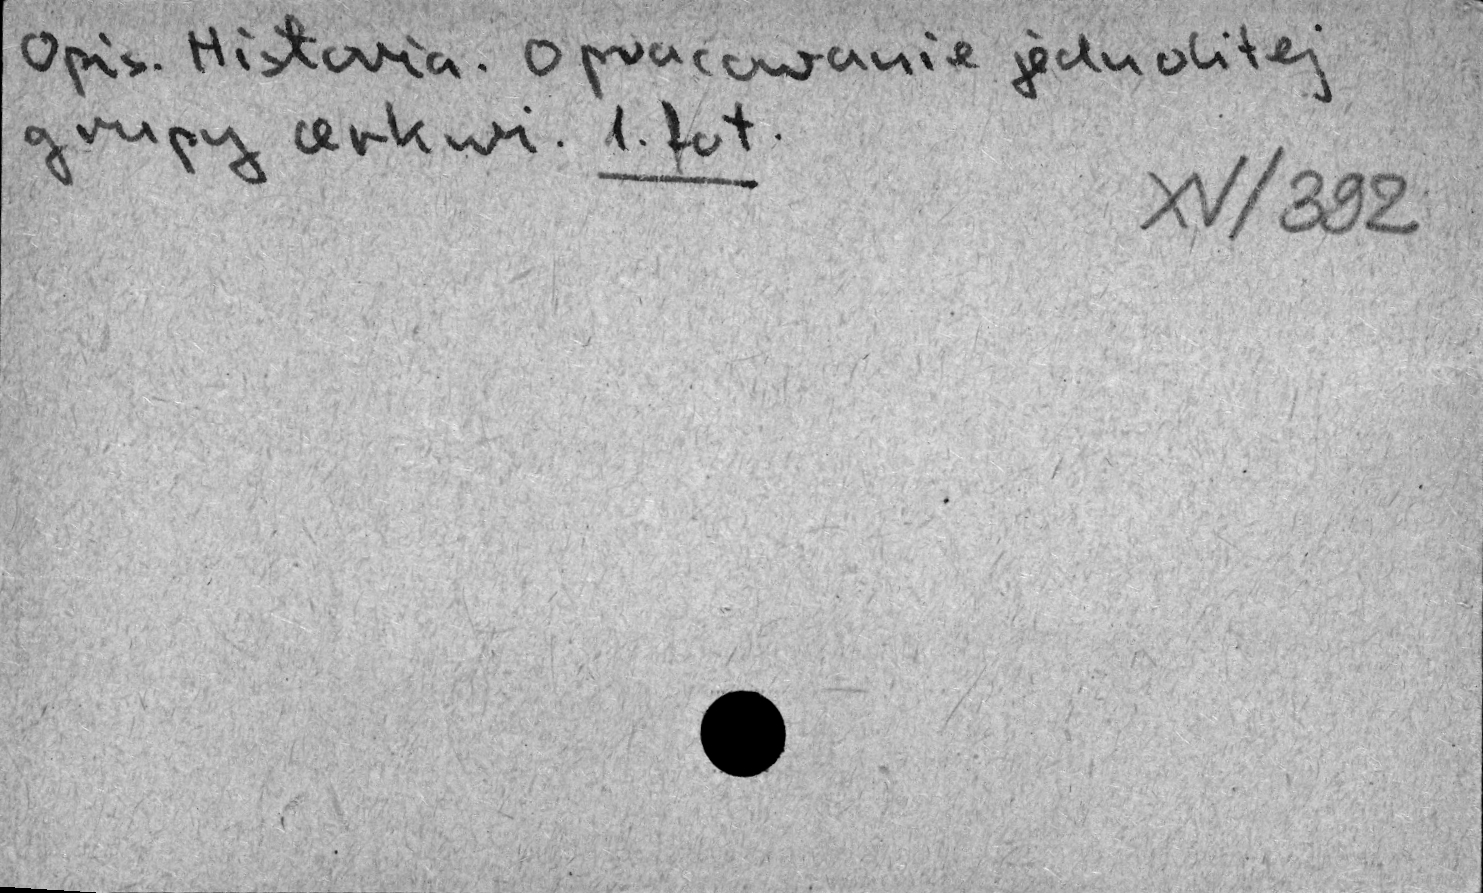 Opis. Historia. Opracowanie jednolitej
grupy cerkwi. 1. fot.
XV/392